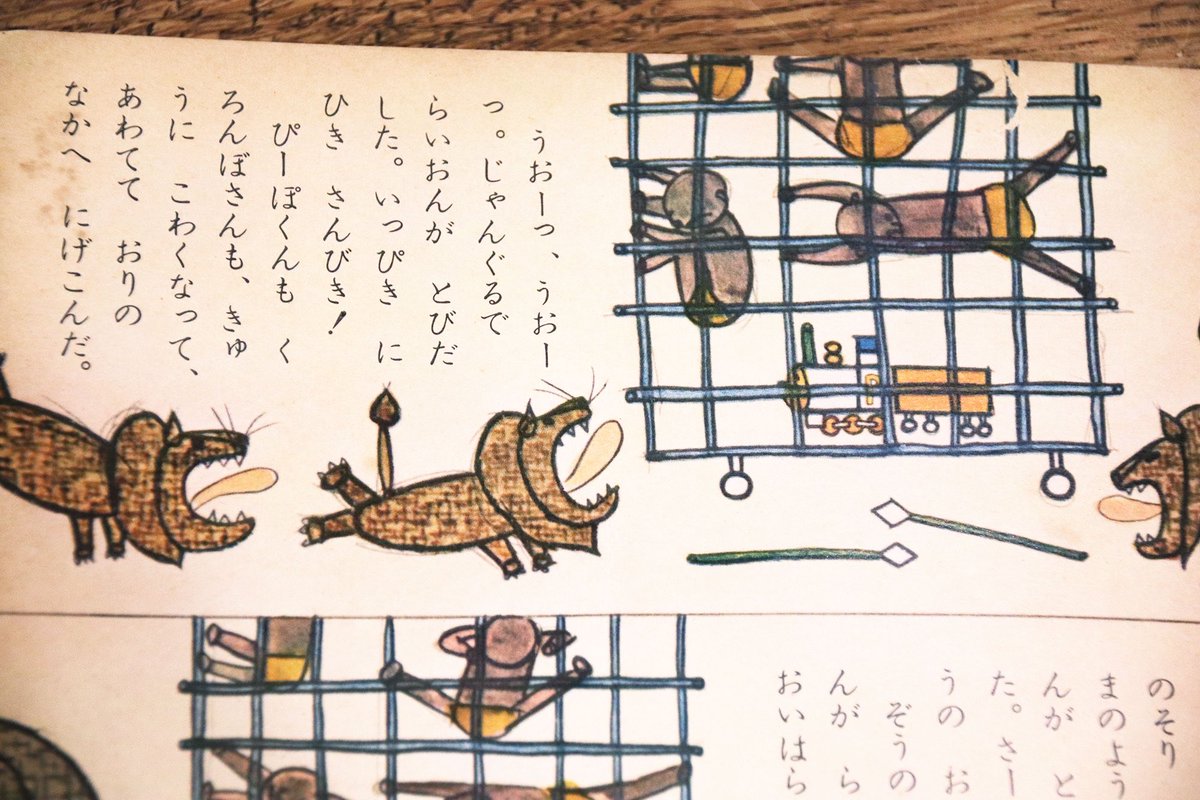 うおーっ、うおー
っ。じゃんぐるで
らいおんが とびだ
した。いっぴき に
ひき さんびき！
ぴーぽくんも く
ろんぼさんも、きゅ
うに こわくなって、
あわてて おりの
なかへ にげこんだ。
のそり
まのよう
んが と
た。さー
うの お
ぞうの
んが ら
おいはら